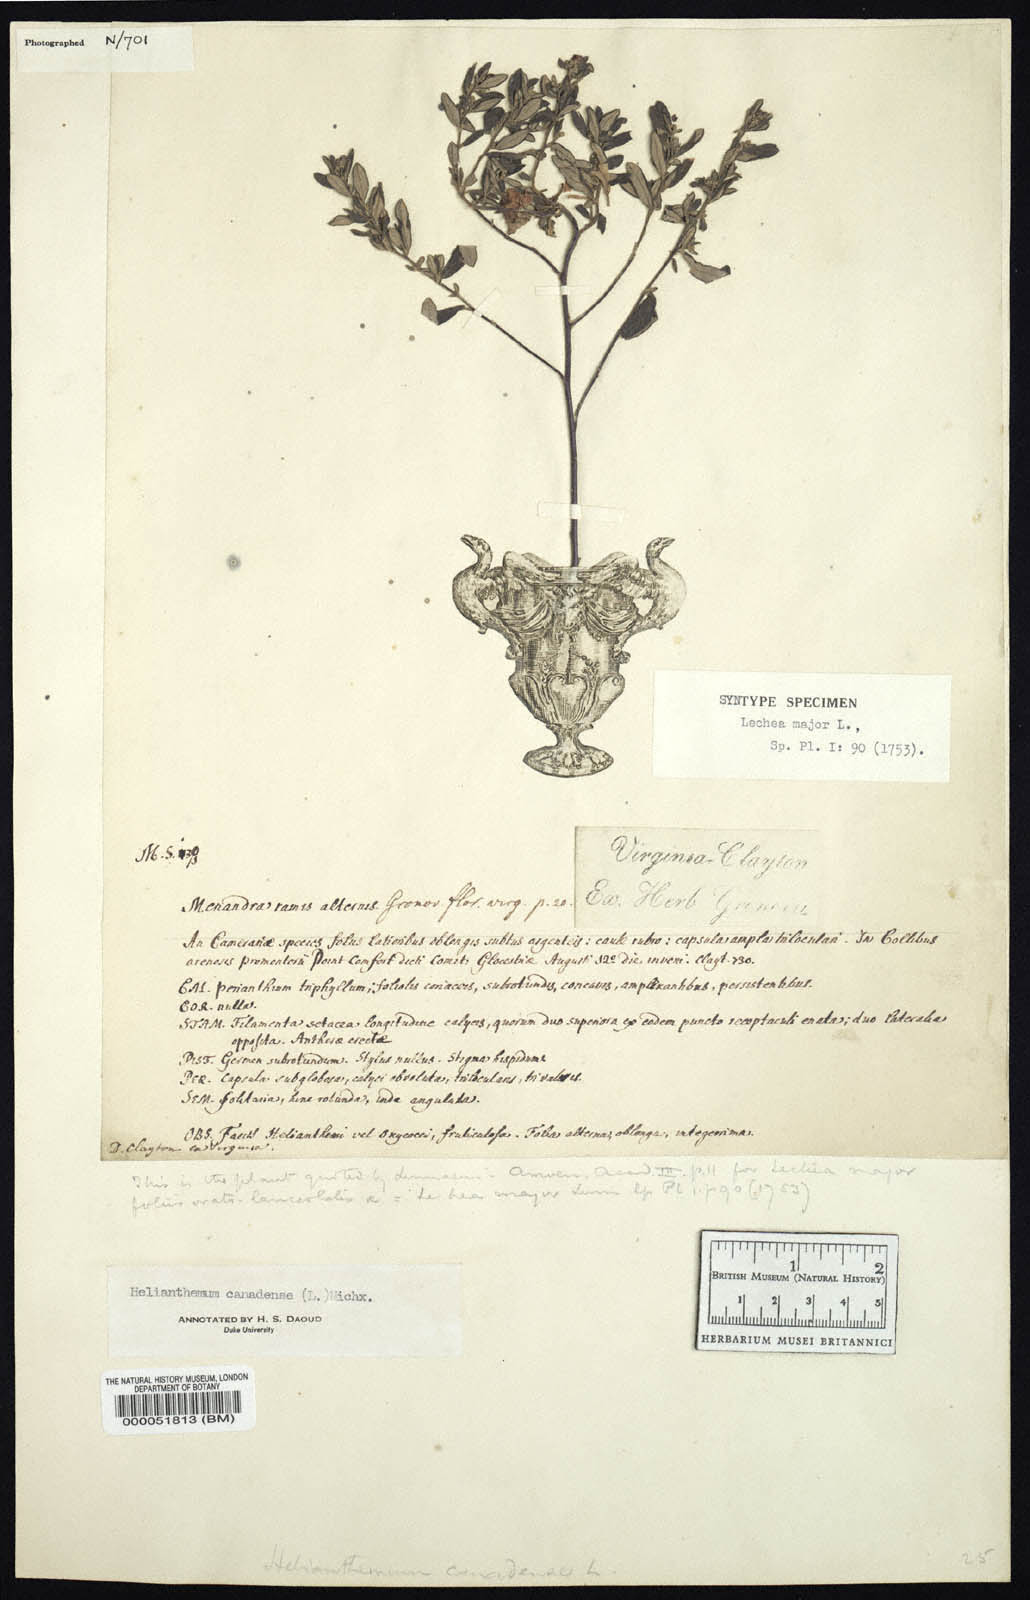 Photographed N/701
SYNTYPE SPECIMEN
Lechea major L.,
Sp. Pl. I: 90 (1753).
M. S.
Virginia Clayton
Ex. Herb Gronovii
Menandra ramis alternis. Gronov flor. virg. p. 20.
An Camerariæ species foliis latioribus oblongis subtus argenteis: caule rubro: capsula ampla triloculari. In Collibus
arenosis promontorii Point Comfort dicti Comit. Glocestriæ Augusti 12º die inveni. Clayt. 730.
CAL. perianthium triphyllum; foliolis coriaceis, subrotundis, concavis, amplexantibus, persistentibus.
COR. nulla.
STAM. Filamenta setacea longitudine calycis, quorum duo superiora ex eodem puncto receptaculi enata; duo lateralia
opposita. Antheræ erectæ
PIST. Germen subrotundum. Stylus nullus. Stigma hispidum.
PER. Capsula subglobosa, calyci obvoluta, trilocularis, trivalvis.
SEM. solitaria, hinc rotunda, inde angulata.
OBS. Facies Helianthemi vel Oxycocci, fruticulosa. Folia alterna, oblonga, integerrima.
D. Clayton ex Virginia.
This is the plant quoted by Linnaeus in Amoen. Acad III. p. 11 for Lechea major
foliis ovato-lanceolatis = Lechea major Linn Sp Pl i. p 90 (1753)
Helianthemum canadense (L.)Michx.
ANNOTATED BY H. S. DAOUD
Duke University
1 2
BRITISH MUSEUM (NATURAL HISTORY)
1 2 3 4 5
HERBARIUM MUSEI BRITANNICI
THE NATURAL HISTORY MUSEUM, LONDON
DEPARTMENT OF BOTANY
000051813 (BM)
Helianthemum canadense L.
25